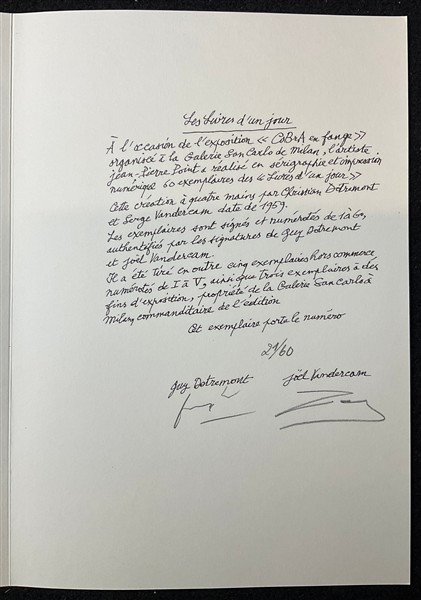 Les Livres d'un jour
À l'occasion de l'exposition << CoBrA en fange >>
organisée à la Galerie San Carlo de Milan, l'artiste
Jean-Pierre Point a réalisé en sérigraphie et impression
numérique 60 exemplaires des << Livres d'un jour >>
Cette création à quatre mains par Christian Dotremont
et Serge Vandercam date de 1959.
Les exemplaires sont signés et numérotés de 1 à 60,
authentifiés par les signatures de Guy Dotremont
et Joël Vandercam.
Il a été tiré en outre cinq exemplaires hors commerce
numérotés de I à V, ainsi que trois exemplaires à des
fins d'exposition, propriété de la Galerie San Carlo à
Milan, commanditaire de l'édition
Cet exemplaire porte le numéro
21/60
Guy Dotremont Joël Vandercam